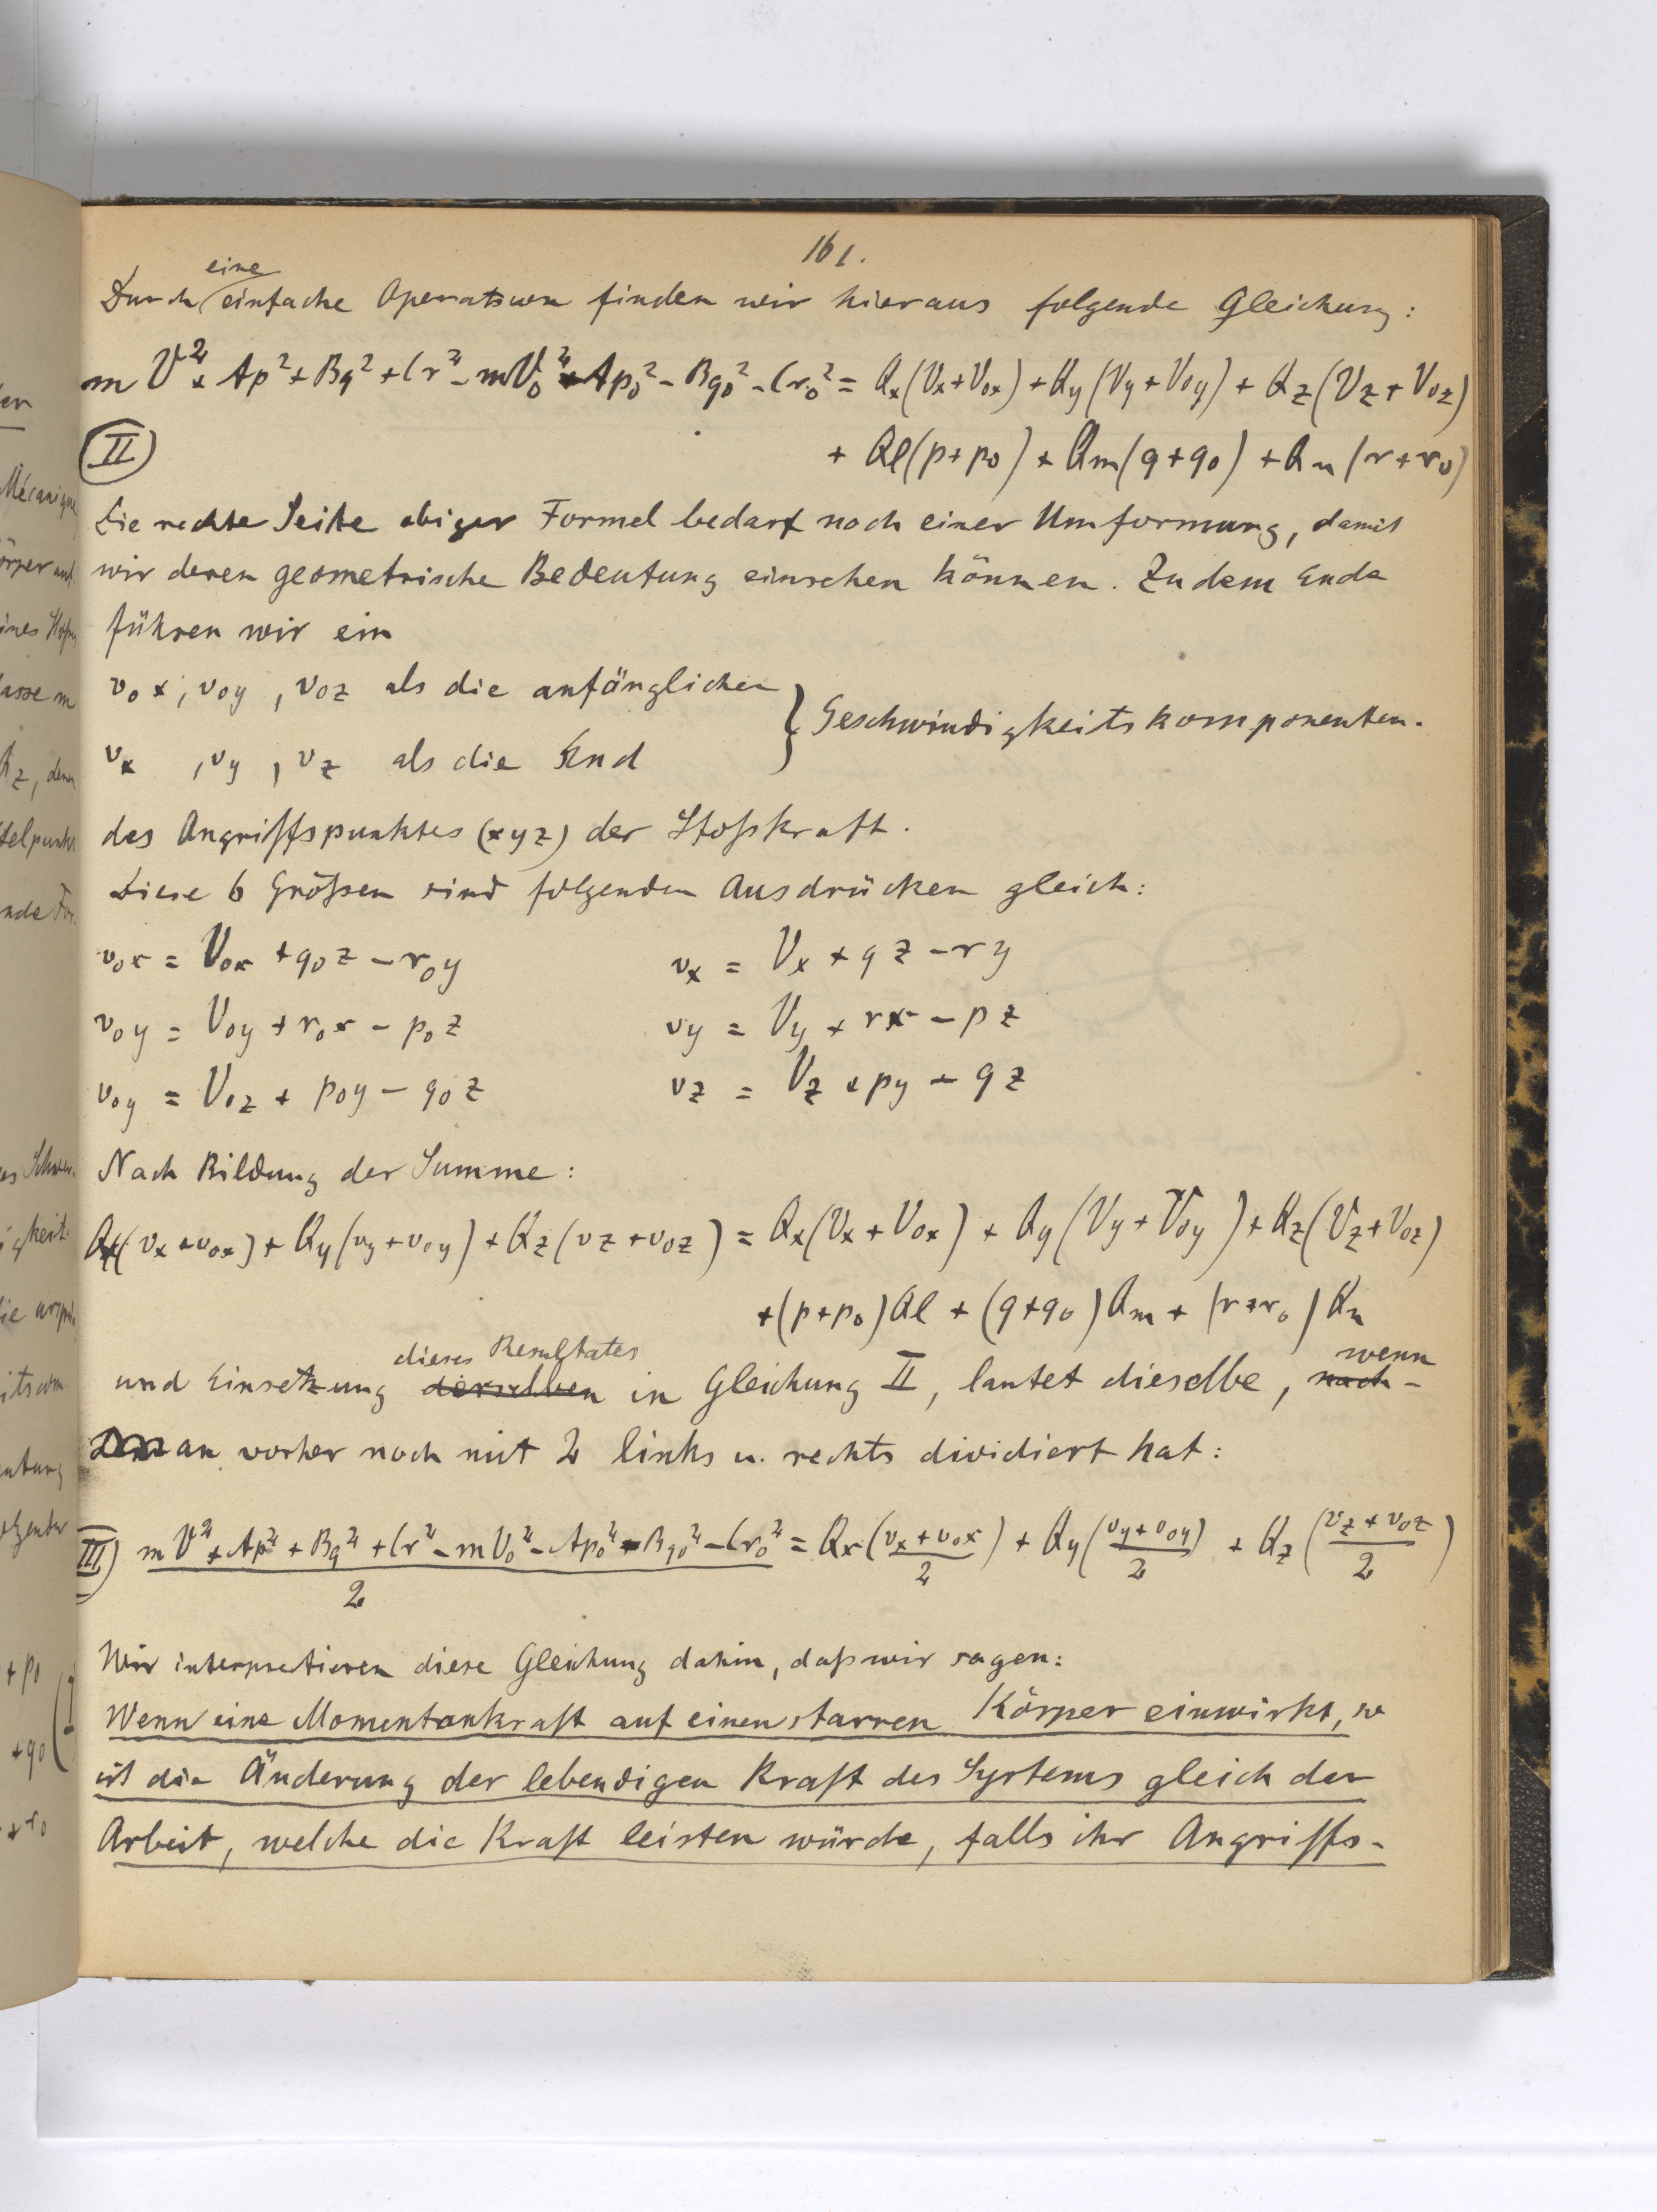 161.
eine
Durch einfache Operatiuon finden wir hieraus folgende Gleichung:
m V² + Ap² + Bq² + Cr² - mV₀² - Ap₀² - Bq₀² - Cr₀² = Qx(Vx+V₀x) + Qy(Vy+V₀y) + Qz(Vz+V₀z)
II + Ql(p+p₀) + Qm(q+q₀) + Qn(r+r₀)
Die rechte Seite obiger Formel bedarf noch einer Umformung, damit
wir deren geometrische Bedeutung einsehen können. Zu dem Ende
führen wir ein
v₀x, v₀y, v₀z als die anfänglichen
} Geschwindigkeitskomponenten.
vx, vy, vz als die End
des Angriffspunktes (xyz) der Stoßkraft.
Diese 6 Größen sind folgenden Ausdrücken gleich:
v₀x = V₀x + q₀z - r₀y vx = Vx + qz - ry
v₀y = V₀y + r₀x - p₀z vy = Vy + rx - pz
v₀y = V₀z + p₀y - q₀z vz = Vz + py - qz
Nach Bildung der Summe:
Qx(vx+v₀x) + Qy(vy+v₀y) + Qz(vz+v₀z) = Qx(Vx+V₀x) + Qy(Vy+V₀y) + Qz(Vz+V₀z)
+(p+p₀)Ql + (q+q₀)Qm + (r+r₀)Qn
dieses Resultates wenn
und Einsetzung derselben in Gleichung II, lautet dieselbe, nach-
man vorher noch mit 2 links u. rechts dividiert hat:
III) mV² + Ap² + Bq² + Cr² - mV₀² - Ap₀² - Bq₀² - Cr₀² = Qx(vx+v₀x) + Qy(vy+v₀y) + Qz(vz+v₀z)
2 2 2 2
Wir interpretieren diese Gleichung dahin, daß wir sagen:
Wenn eine Momentankraft auf einen starren Körper einwirkt, so
ist die Änderung der lebendigen Kraft des Systems gleich der
Arbeit, welche die Kraft leisten würde, falls ihr Angriffs-